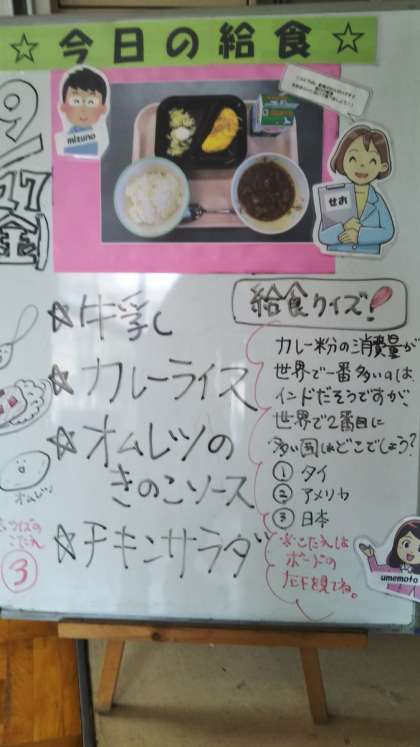 ☆今日の給食☆
mizuno
せお
9/27
(金)
☆牛乳
☆カレーライス
☆オムレツの
きのこソース
☆チキンサラダ
給食クイズ!
カレー粉の消費量が
世界で一番多いのは
インドだそうですが、
世界で2番目に
多い国はどこでしょう?
① タイ
② アメリカ
③ 日本
※こたえは
ボードの
左下を見てね。
umemoto
オムレツ
クイズの
こたえ
③